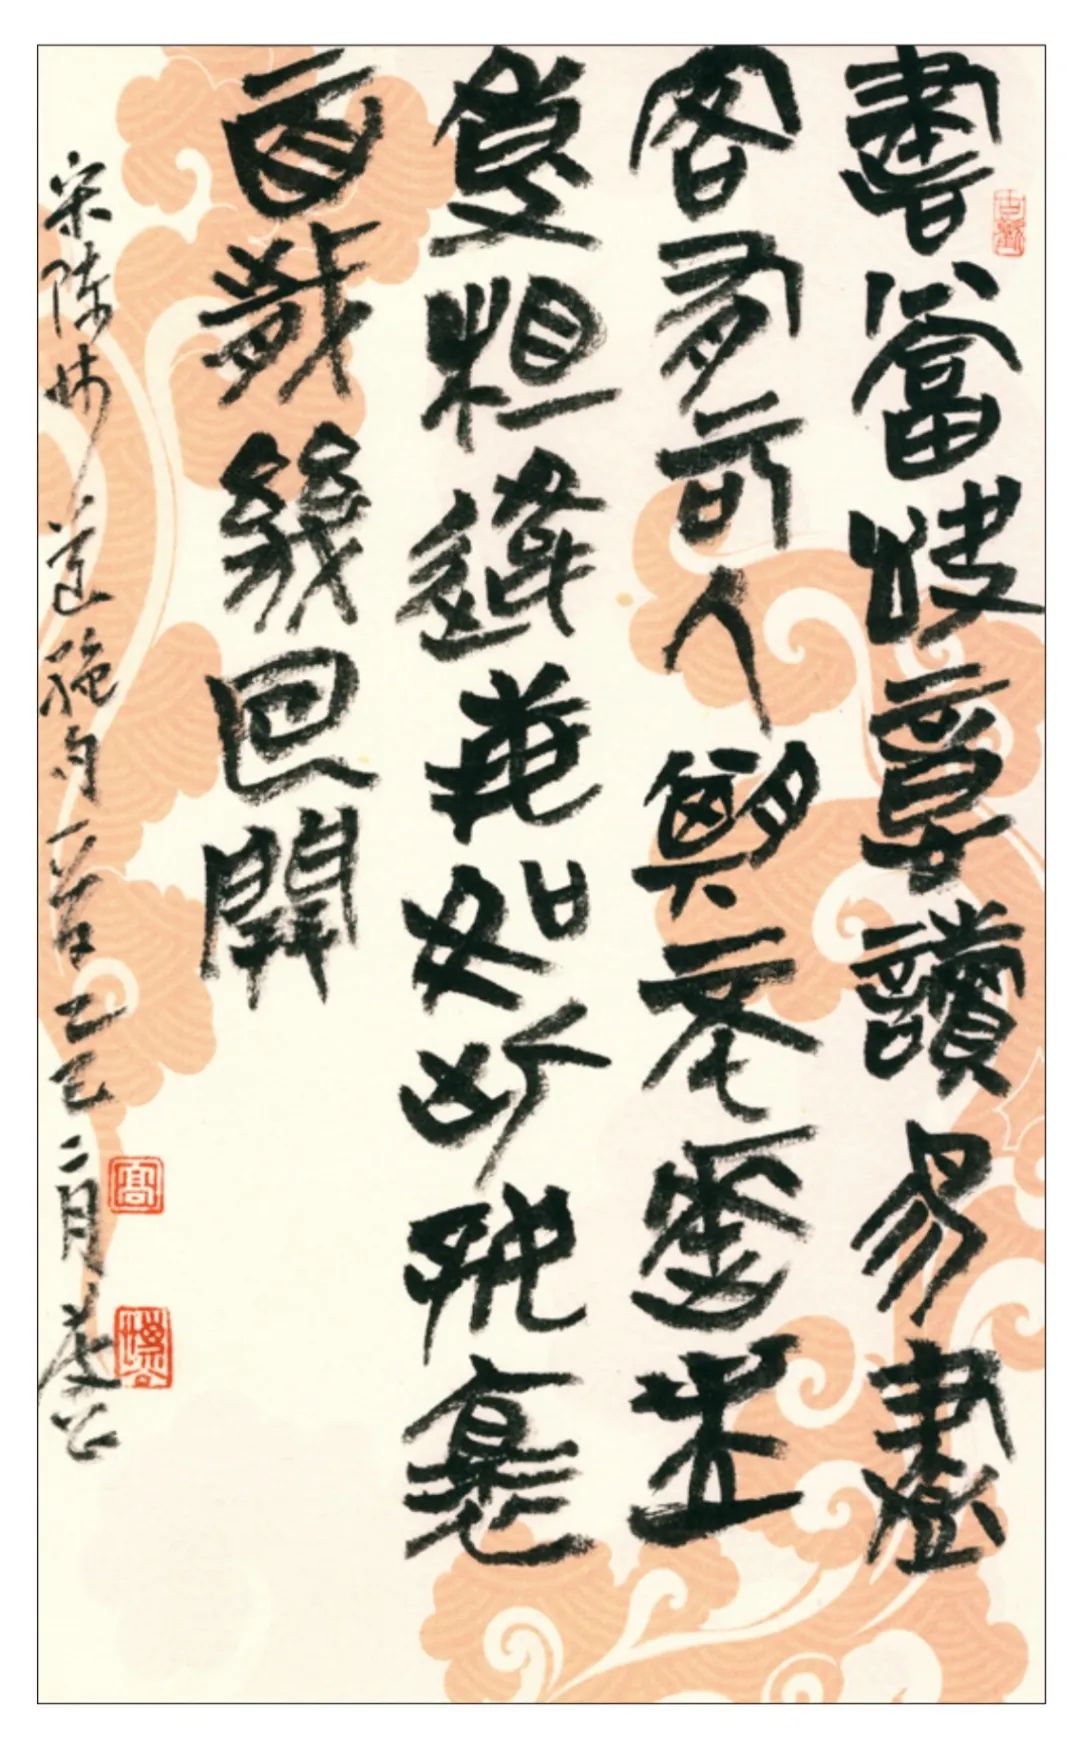 書當快意讀易盡
客有可人期不來世
事相違每如此好懷
百歲幾回開
宋陳師道絕句一首乙巳二月